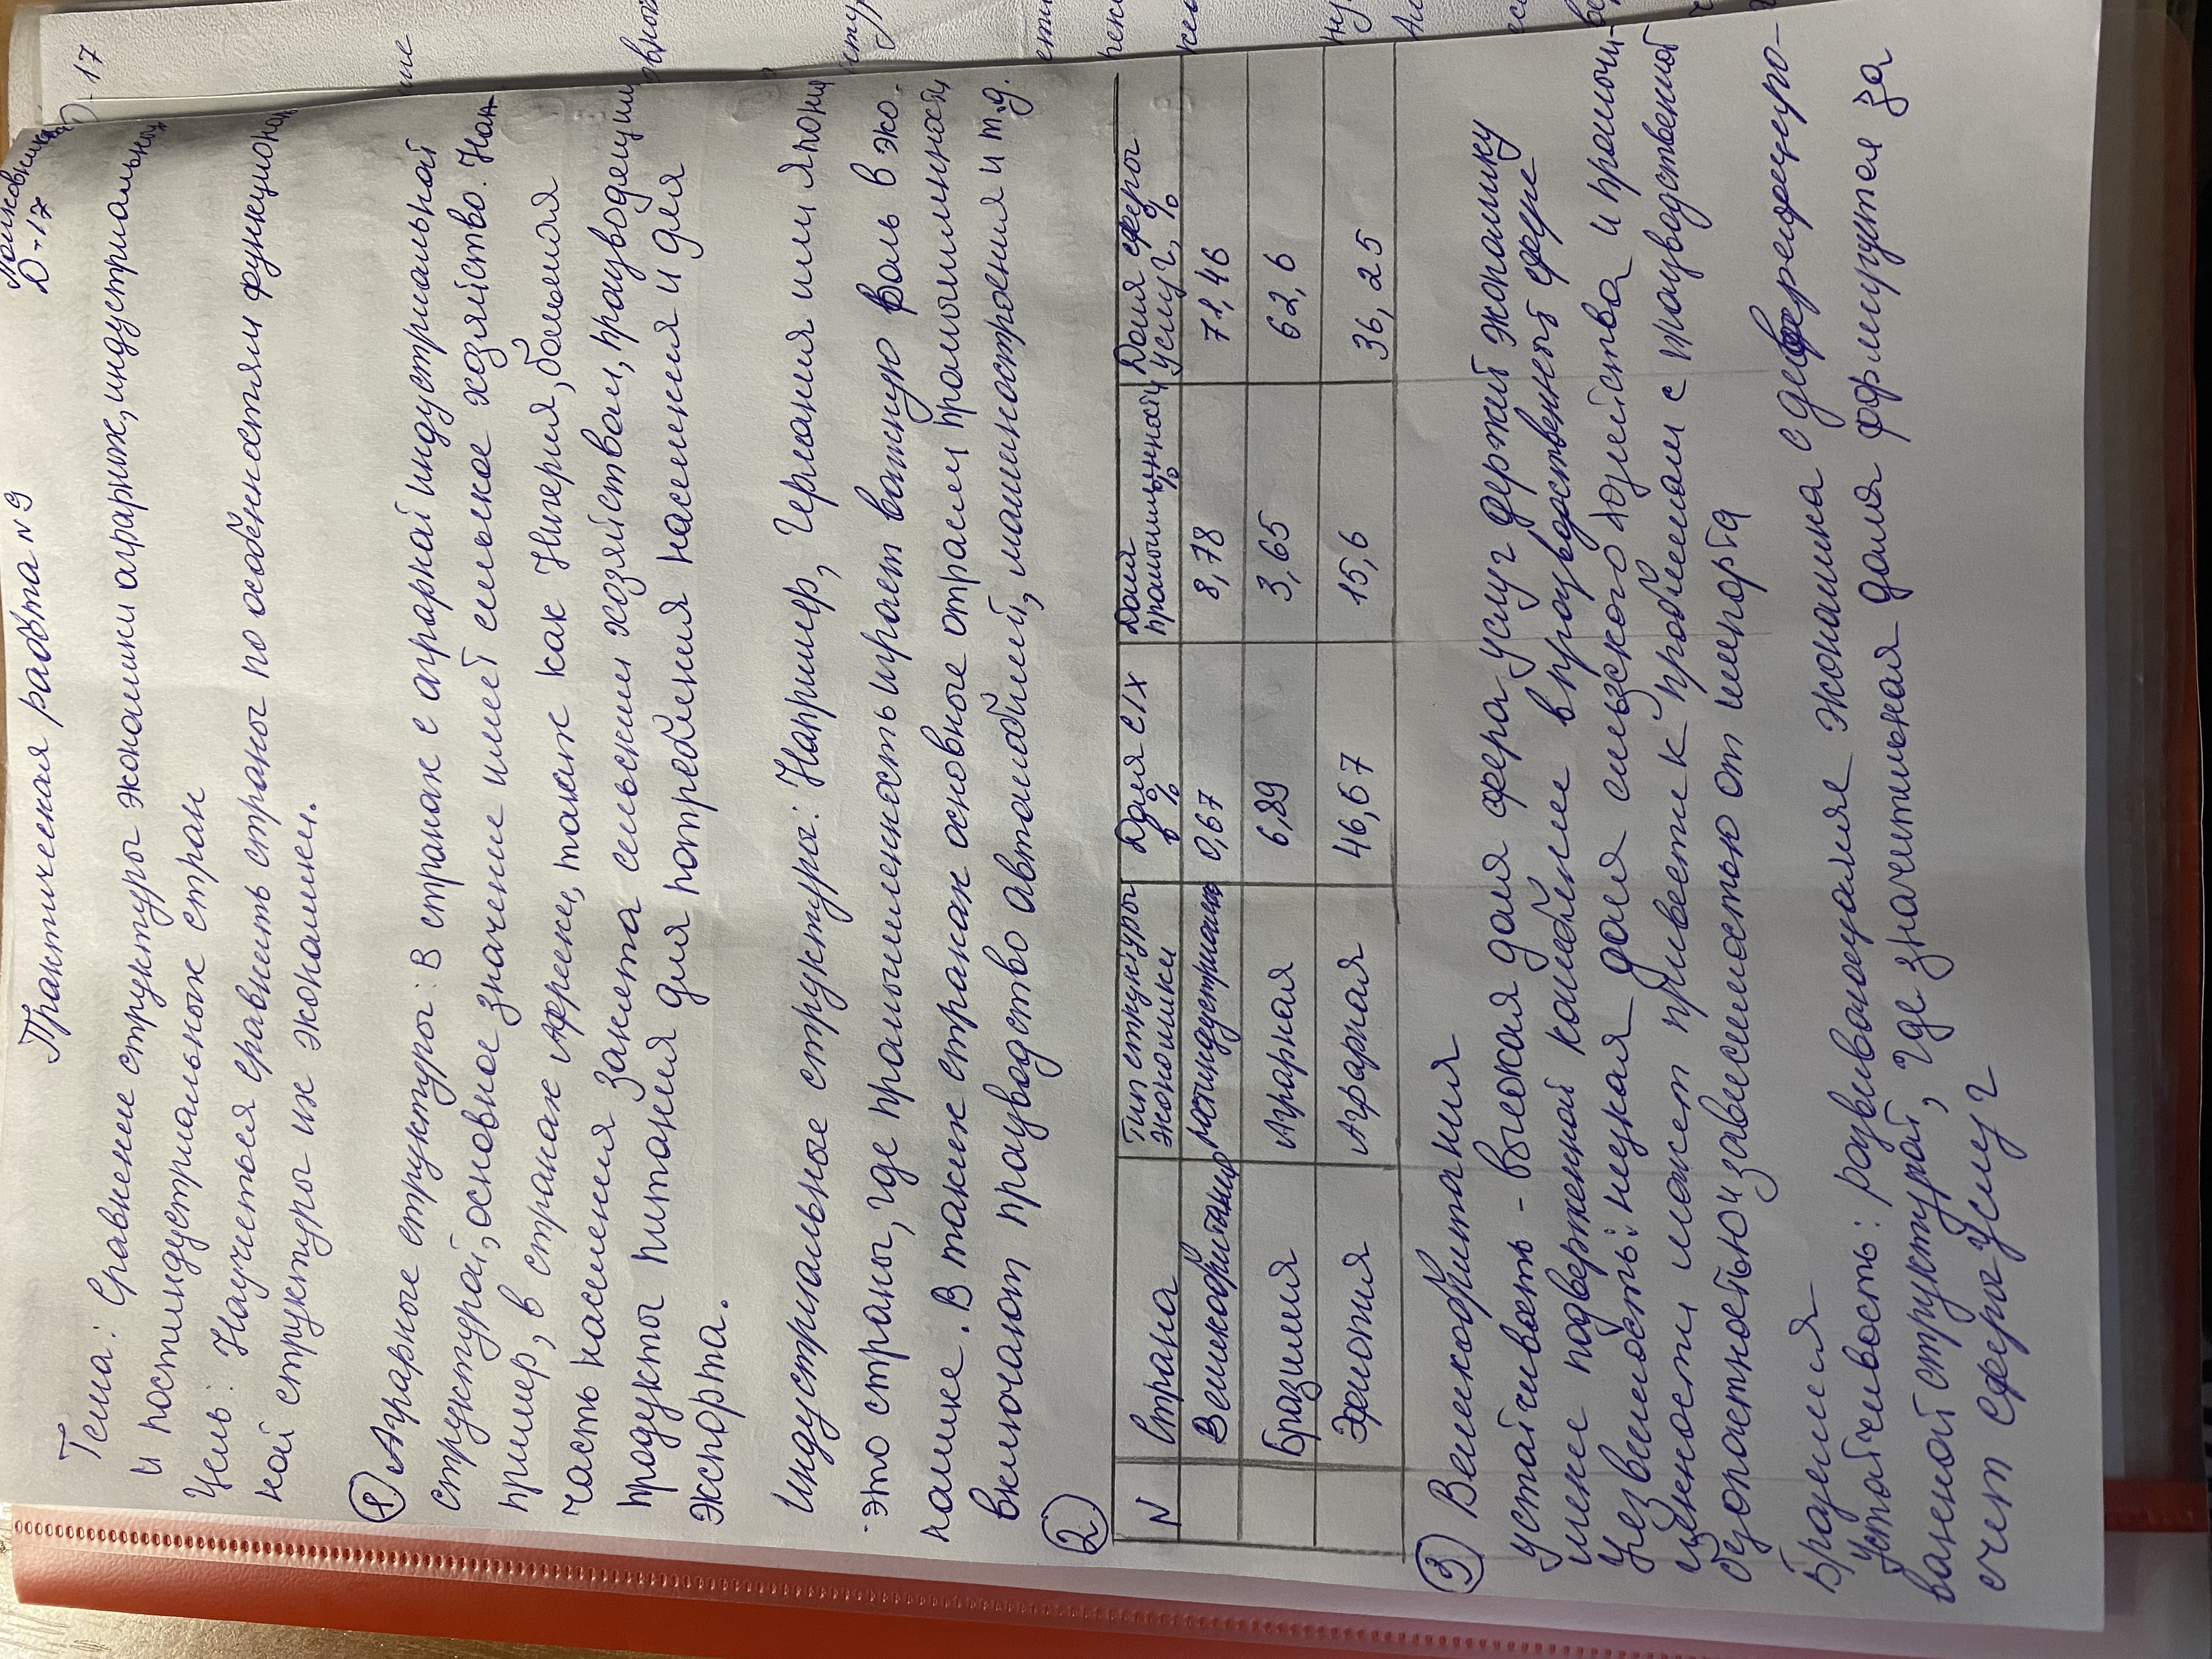 Д-17
Практическая работа N9
Тема: Сравнение структуры экономики аграрних, индустриальных
и постиндустриальных стран
Цель: Научиться сравнить страны по особенностям функционал
ной структуры их экономики.
1 Аграрные структуры: В странах с аграрной индустриальной
структурой, основное значение имеет сельское хозяйство. Нап
ример, в странах Африки, таких как Нигерия, большая
часть населения занята сельским хозяйством, производящим
продукты питания для потребления населения и для
экспорта.
Индустриальные структуры: Например, Германия или Япония
это страны, где промышленность играет важную роль в эко-
номике. В таких странах основные отрасли промышленности
включают производство автомобилей, машиностроения и т.д.
2.
N Страна Тип структуры экономики Доля с/х % Доля промышленности % Доля сферы услуг, %
Великобритания постиндустриальная 0,67 8,78 71,46
Бразилия Аграрная 6,89 3,65 62,6
Эфиопия Аграрная 46,67 15,6 36,25
3 Великобритания
устойчивость - высокая доля сфера услуг держит экономику
менее подверженной колебание в производственной сфере
Уязвимость: низкая доля сельского хозяйства и промыш-
ленности может привести к проблемам с продовольственной
безопасностью и зависимостью от импорта
Бразилия
Устойчивость: развивающаяся экономика с диверсифициро-
ванной структурой, где значительная доля формируется за
счет сферы услуг